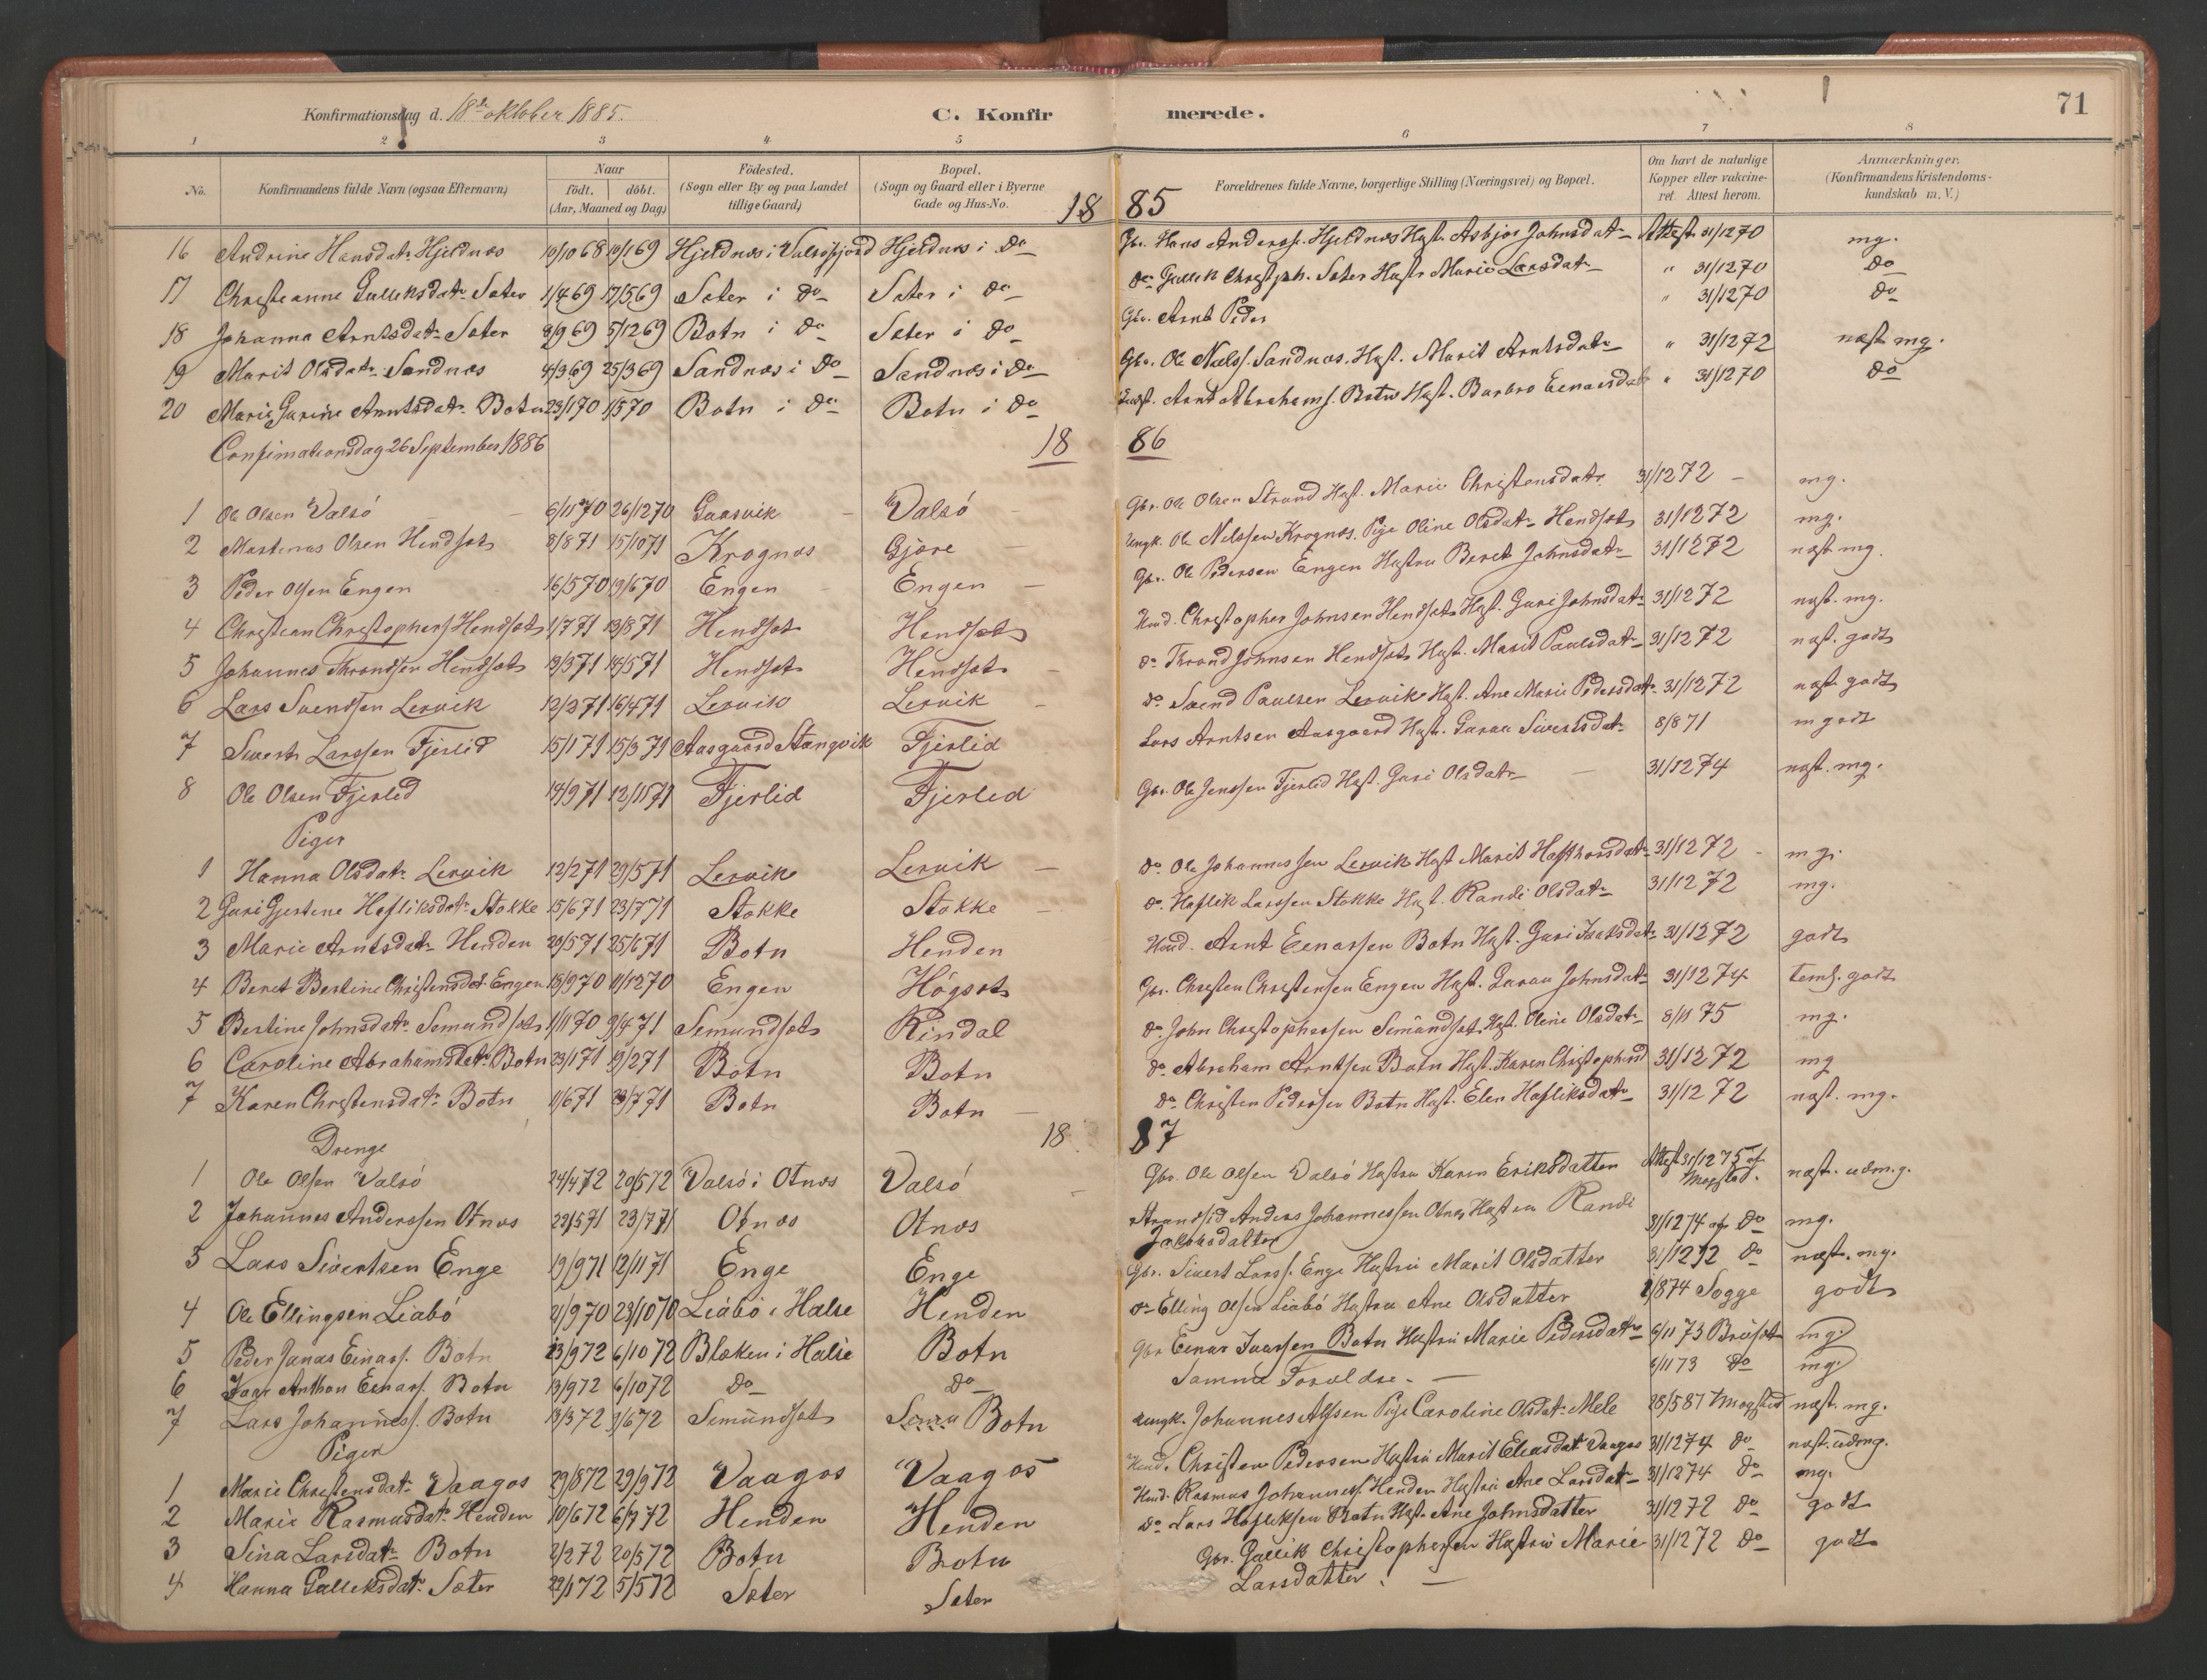 Konfirmationsdag d. 18de oktober 1885. C. Konfirmerede. 71
1 2 3 4 5 6 7 8
No. Konfirmandens fulde Navn (ogsaa Efternavn) Naar födt. döbt. (Aar, Maaned og Dag) Födested. (Sogn eller By og paa Landet tillige Gaard) Bopæl. (Sogn og Gaard eller i Byerne Gade og Hus-No. Forældrenes fulde Navne, borgerlige Stilling (Næringsvei) og Bopæl. Om havt de naturlige Kopper eller vakcineret. Attest herom. Anmærkninger. (Konfirmandens Kristendomskundskab m. V.)
18 85
16 Andrine Hansdatr Hjeldnæs 10/10 68 10/1 69 Hjeldnæs i Valsöfjord Hjeldnæs i do Gbr. Hans Anderss. Hjeldnæs Hust. Asbjor Johnsdatr Attest 31/12 70 mg.
17 Christeanne Gulleksdatr Sæter 1/4 69 17/5 69 Sæter i do Sæter i do do Gullik Christoph. Sæter Hustr Marie Larsdatr " 31/12 70 do
18 Johanna Arntsdatr Sæter 8/9 69 5/12 69 Botn i do Sæter i do Gbr. Arnt Peder " 31/12 70 do
19 Marit Olsdatr Sandnæs 4/3 69 25/3 69 Sandnæs i do Sandnæs i do Gbr. Ole Nilss. Sandnæs. Hust. Marit Arntsdatr " 31/12 72 næst mg.
20 Marie Gurine Arntsdatr Botn 23/1 70 1/5 70 Botn i do Botn i do Arnt Abrahams. Botn Hust. Barbro Eenarsdatr " 31/12 70 do
Confirmationsdag 26 September 1886 18 86
1 Ole Olsen Valsö 6/11 70 26/12 70 Gaasvik Valsö Gbr. Ole Olsen Strand Hust. Marie Christensdatr 31/12 72 mg.
2 Mortinus Olsen Hendset 8/8 71 15/10 71 Krognæs Gjøre Ungk. Ole Nelssen Krognæs. Pige Oline Olsdatr Hendset 31/12 72 mg.
3 Peder Olsen Engen 16/5 70 19/6 70 Engen Engen Gbr. Ole Pedersen Engen Hustru Beret Johnsdatr 31/12 72 næst mg.
4 Christean Christophers Hendset 1/7 71 13/8 71 Hendset Hendset Huud. Christopher Johnsen Hendset Hust. Guri Johnsdatr 31/12 72 næst. mg.
5 Johannes Throndsen Hendset 13/3 71 14/5 71 Hendset Hendset do Thrond Johnsen Hendset Hust. Marit Paulsdatr 31/12 72 næst. godt
6 Lars Svendsen Lervik 12/2 71 16/4 71 Lervik Lervik do Svend Paulsen Lervik Hust. Ane Marie Pedersdatr 31/12 72 næst godt
7 Sivert Larssen Fjerlid 15/1 71 15/3 71 Aasgaard Stangvik Fjerlid Lars Arntsen Aasgaard Hust. Guruu Sivertsdatr 8/8 71 m godt
8 Ole Olsen Fjerlid 14/9 71 12/11 71 Fjerlid Fjerlid Gbr. Ole Jenssen Fjerlid Hust. Guri Olsdatr 31/12 74 næst. mg.
Piger
1 Hanna Olsdatr Lervik 12/2 71 29/5 71 Lervik Lervik do Ole Johannessen Lervik Hust Marit Hafthorsdatr 31/12 72 mg.
2 Guri Gjertine Hafliksdatr Stokke 15/6 71 23/7 71 Stokke Stokke do Haflik Larssen Stokke Hust. Randi Olsdatr 31/12 72 mg.
3 Marie Arntsdatr Henden 20/5 71 25/6 71 Botn Henden Huud. Arnt Eenarsen Botn Hust. Guri Isaksdatr 31/12 72 godt
4 Beret Bertine Christensdat Engen 18/9 70 11/12 70 Engen Högset Gbr. Christen Christensen Engen Hust. Guruu Johnsdatr 31/12 74 teml. godt
5 Bertine Johnsdatr Semundset 1/11 70 9/4 71 Semundset Rindal do John Christophersen Semundset Hust. Oline Olsdatr 8/11 75 mg.
6 Caroline Abrahamsdatr Botn 23/1 71 19/2 71 Botn Botn do Abraham Arntsen Botn Hust. Karen Christophersd 31/12 72 mg
7 Karen Christensdatr Botn 11/6 71 23/7 71 Botn Botn do Christen Pedersen Botn Hust. Elen Hafliksdatr 31/12 72 næst. mg.
Drenge 18 87
1 Ole Olsen Valsö 24/4 72 20/5 72 Valsö i Otnæs Valsö Gbr. Ole Olsen Valsö Hustru Karen Eriksdatten Attest 31/12 75 af Mogstad. næst. udm.g.
2 Johannes Anderssen Otnæs 22/5 71 23/7 71 Otnæs Otnæs Strandsid Anders Johannessen Otnæs Hustru Randi Jakobsdatter 31/12 74 af do mg.
3 Lars Sivertsen Enge 19/9 71 12/11 71 Enge Enge Gbr. Sivert Larss. Enge Hustru Marit Olsdatter 31/12 72 do næst. mg.
4 Ole Ellingsen Liabö 21/9 70 23/10 70 Liabö i Halse Henden do Elling Olsen Liabö Hustru Ane Olsdatter 1/8 74 Sogge godt
5 Peder Jonas Einars. Botn 13/9 72 6/10 72 Bløken i Halse Botn Gbr Eenar Ivarsen Botn Hustru Marie Pedersdatr 6/11 73 Brüset mg.
6 Ivar Anthon Eenars. Botn 13/9 72 6/10 72 do do Samme Forældre. 6/11 73 do mg.
7 Lars Johanness. Botn 13/3 72 3/6 72 Semundset Botn Ungk. Johannes Alfsen Pige Caroline Olsdatr Mele 28/5 87 Mogstad næst. mg.
Piger
1 Marie Christensdatr Vaagos 29/8 72 29/9 72 Vaagos Vaagos Huud. Christen Pedersen Hustru Marit Eleasdatr Vaagos 31/12 74 do næst. udmg.
2 Marie Rasmusdatr Henden 10/6 72 6/7 72 Henden Henden Huud. Rasmus Johanness. Henden Hustru Ane Larsdatr 31/12 74 do mg.
3 Sina Larsdatr Botn 2/2 72 20/5 72 Botn Botn do Lars Hafliksen Botn Hust. Ane Johnsdatter 31/12 72 do godt
4 Hanna Gulleksdatr Sæter 22/1 72 5/5 72 Sæter Sæter Gbr. Gullik Christophersen Hustru Marie Larsdatter. 31/12 72 do godt